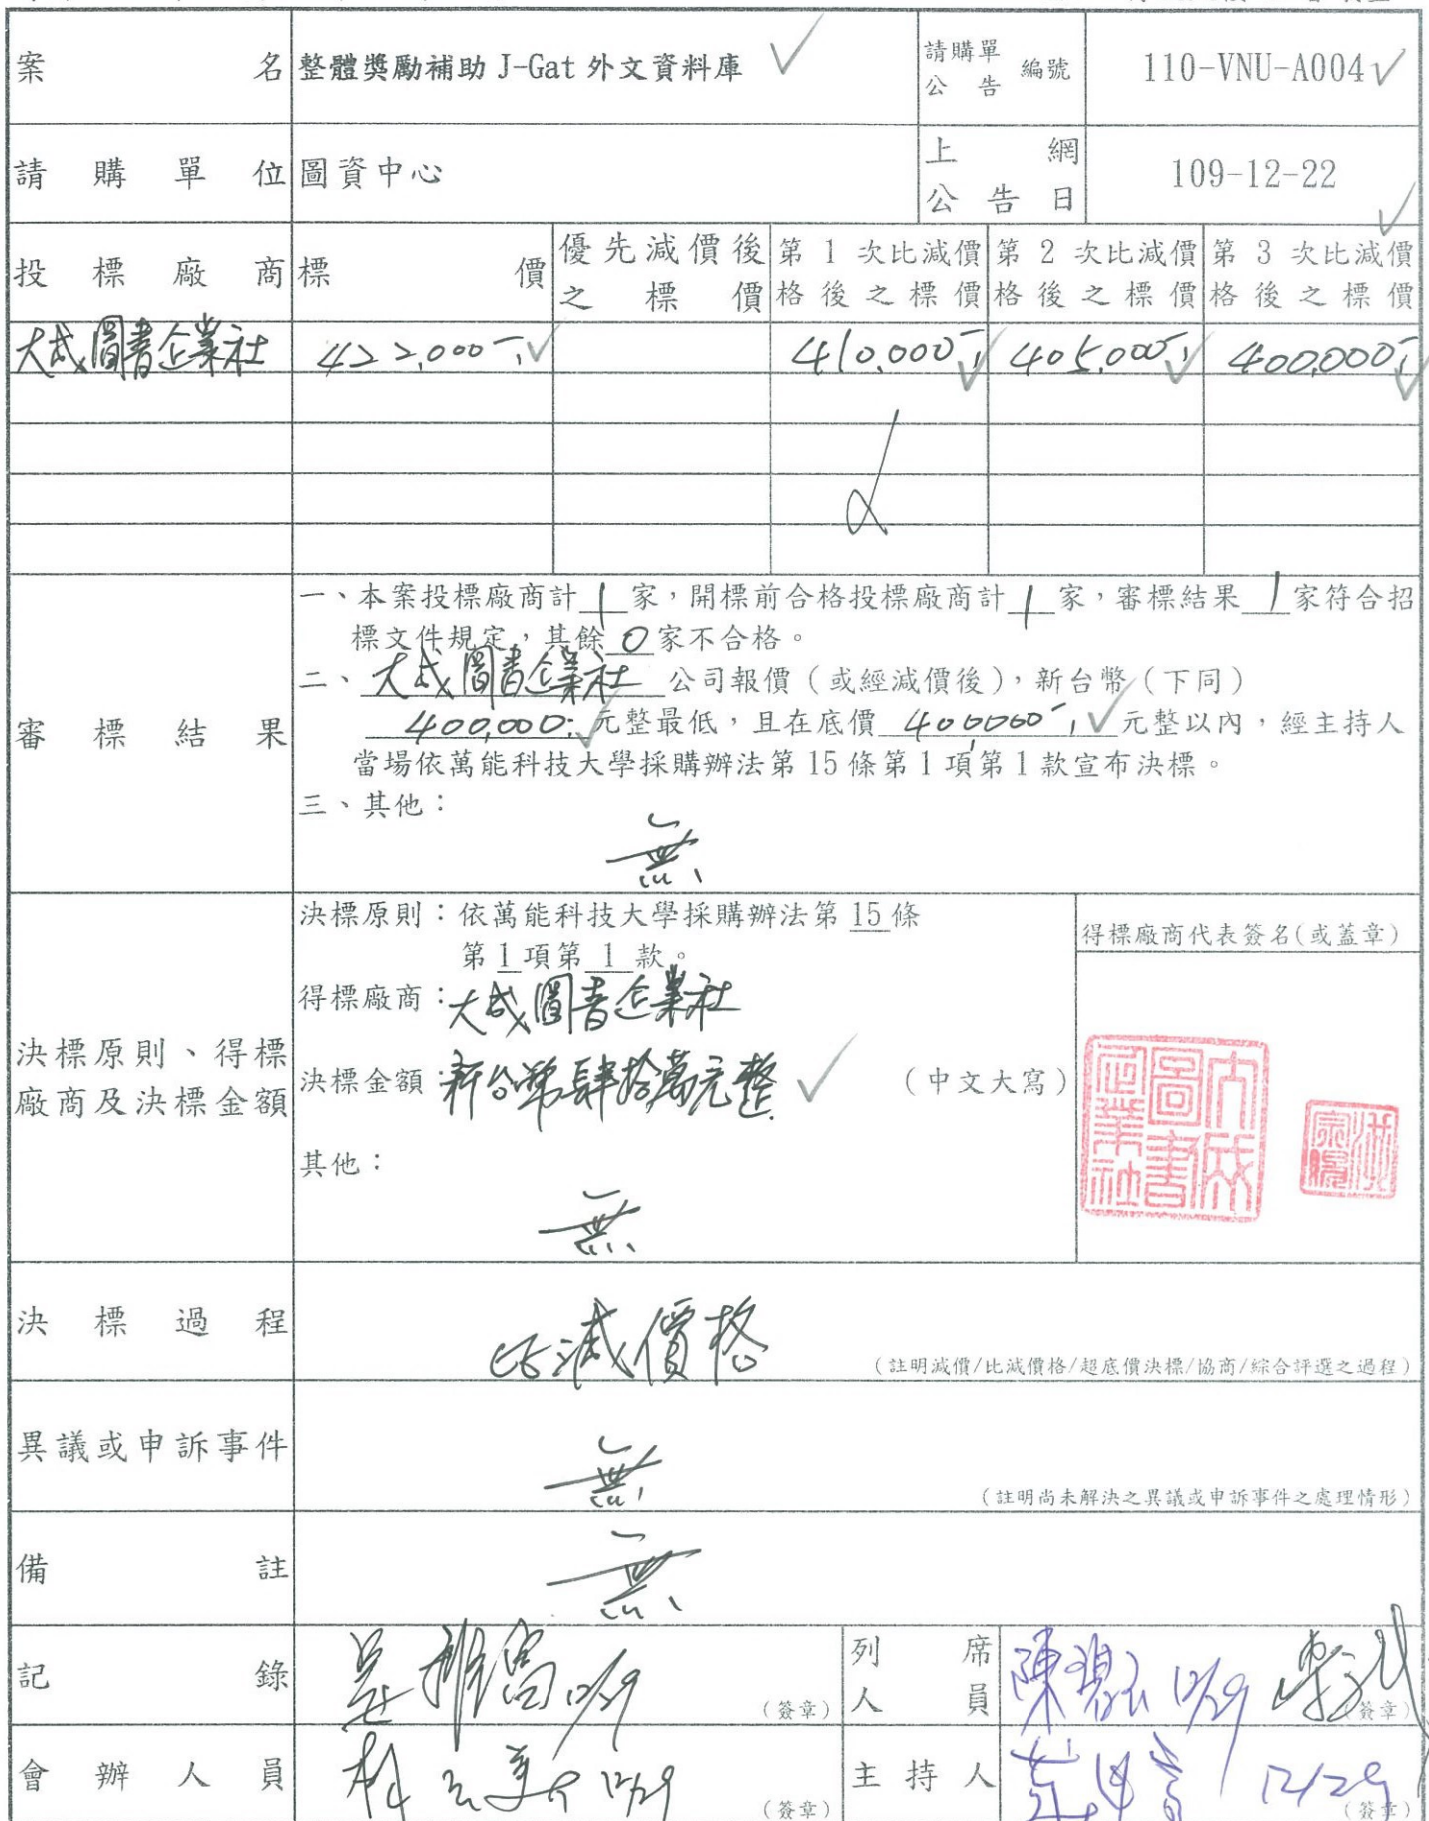 案名 整體獎勵補助 J-Gat 外文資料庫 請購單公告 編號 110-VNU-A004
請購單位 圖資中心 上網公告日 109-12-22
投標廠商 標價 優先減價後之標價 第 1 次比減價格後之標價 第 2 次比減價格後之標價 第 3 次比減價格後之標價
大成圖書企業社 422,000 410,000 405,000 400,000
審標結果
一、本案投標廠商計 1 家，開標前合格投標廠商計 1 家，審標結果 1 家符合招
標文件規定，其餘 0 家不合格。
二、大成圖書企業社 公司報價（或經減價後），新台幣（下同）
400,000 元整最低，且在底價 400000 元整以內，經主持人
當場依萬能科技大學採購辦法第 15 條第 1 項第 1 款宣布決標。
三、其他：
無
決標原則、得標
廠商及決標金額
決標原則：依萬能科技大學採購辦法第 15 條
第 1 項第 1 款。
得標廠商：大成圖書企業社
決標金額：新台幣肆拾萬元整 （中文大寫）
其他：
無
得標廠商代表簽名(或蓋章)
大成圖書企業社
決標過程 比減價格 （註明減價/比減價格/超底價決標/協商/綜合評選之過程）
異議或申訴事件 無 （註明尚未解決之異議或申訴事件之處理情形）
備註 無
記錄 12/29 （簽章） 列席人員 12/29 （簽章）
會辦人員 12/29 （簽章） 主持人 12/29 （簽章）